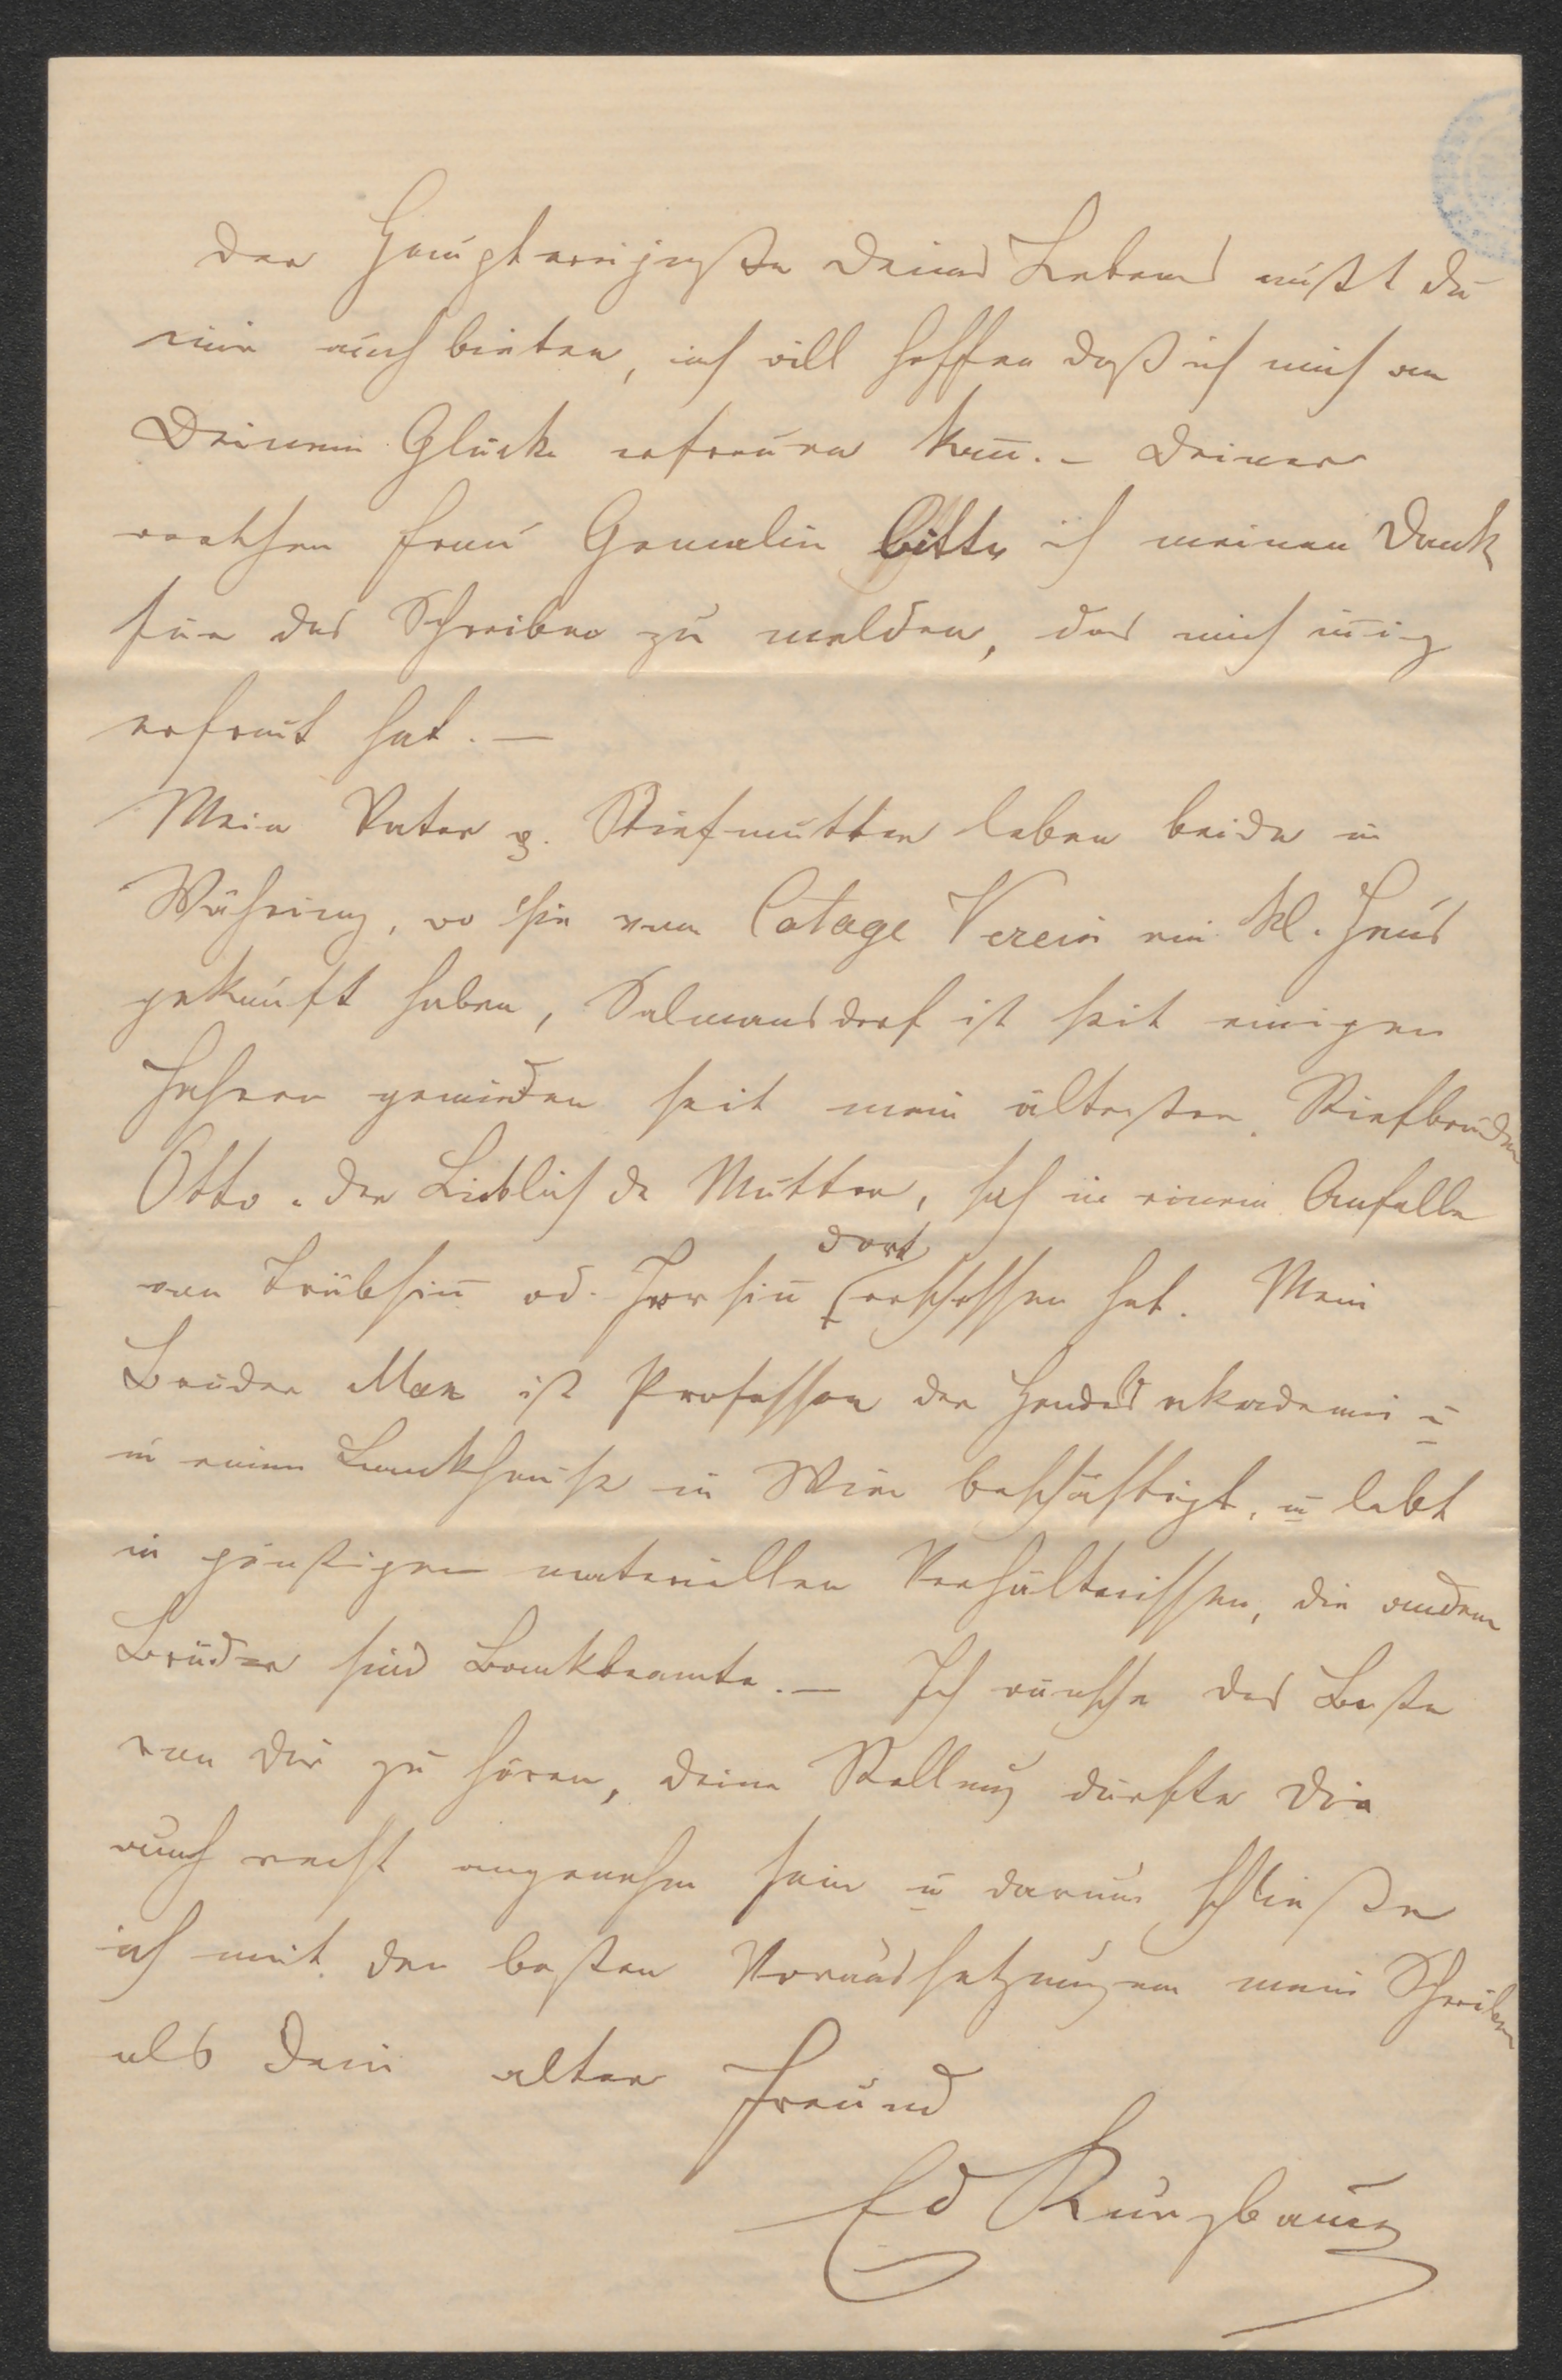 der Hauptereigniße Deines Lebens mußt du
mir auch bieten, ich will hoffen daß ich mich an
Deinem Glücke erfreuen kan̄. – Deiner
werthen Frau Gemalin bitte ich meinen Dank
für das Schreiben zu melden, das mich in̄ig
erfreut hat. –
Mein Vater u. Stiefmutter leben beide in
Währing, wo sie vom Cotage Verein ein kl. Haus
gekauft haben, Salmansdorf ist seit einigen
Jahren gemieden seit mein ältester Stiefbruder
Otto der Liebling der Mutter, sich in einem Anfalle
von Trübsin̄ od. Irrsin̄ dort erschossen hat. Mein
Bruder Max ist Professor der Handelsakademie u
in einem Bankhause in Wien beschäftigt, u lebt
in günstigen materiellen Verhältnissen, die andern
Brüder sind Bankbeamte. – Ich wünsche das Beste
von Dir zu hören, deine Stellung dürfte Dir
auch recht angenehm sein u darum schließe
ich mit den besten Voraussetzungen mein Schreiben
als Dein alter Freund
Ed